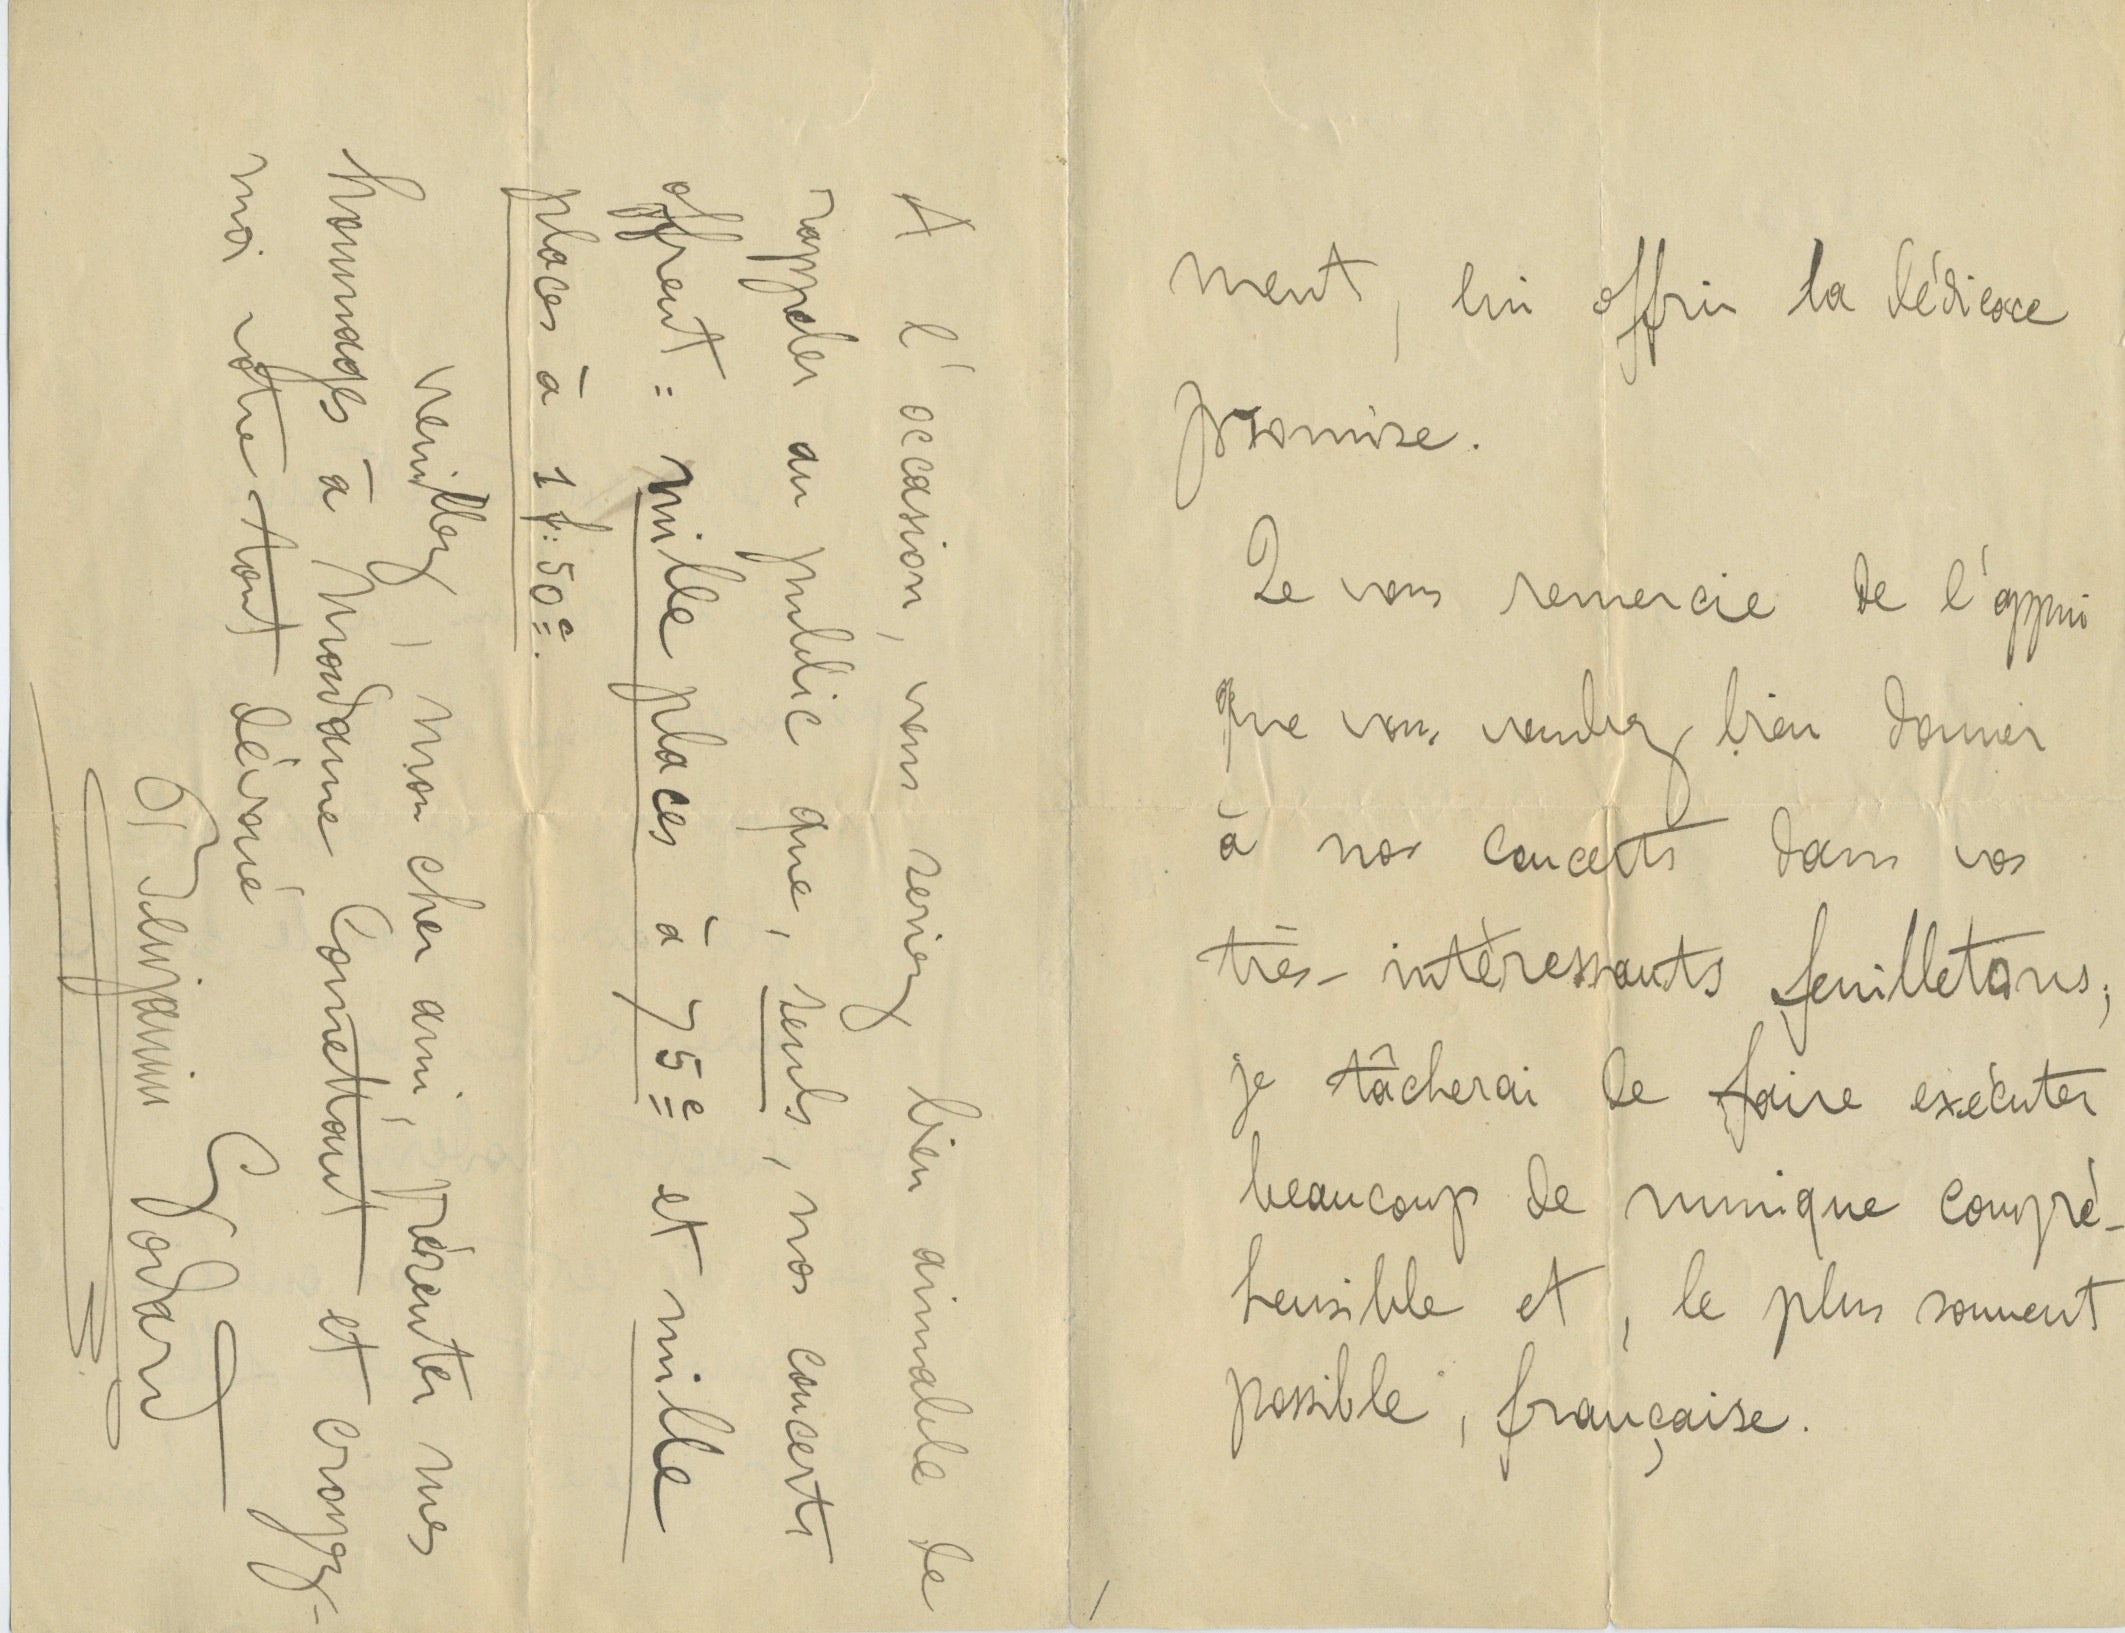 ment, lui offrir la dédicace
promise.
Je vous remercie de l'appui
que vous voudrez bien donner
à nos concerts dans vos
très-intéressants feuilletons;
je tâcherai de faire exécuter
beaucoup de musique compré-
hensible et, le plus souvent
possible, française.
A l'occasion, vous seriez bien aimable de
rappeler au public que, seuls, nos concerts
offrent: mille places à 75c et mille
places à 1f:50c.
Veuillez, mon cher ami, présenter mes
hommages à Madame Comettant et croyez-
moi votre tout dévoué
Benjamin Godard